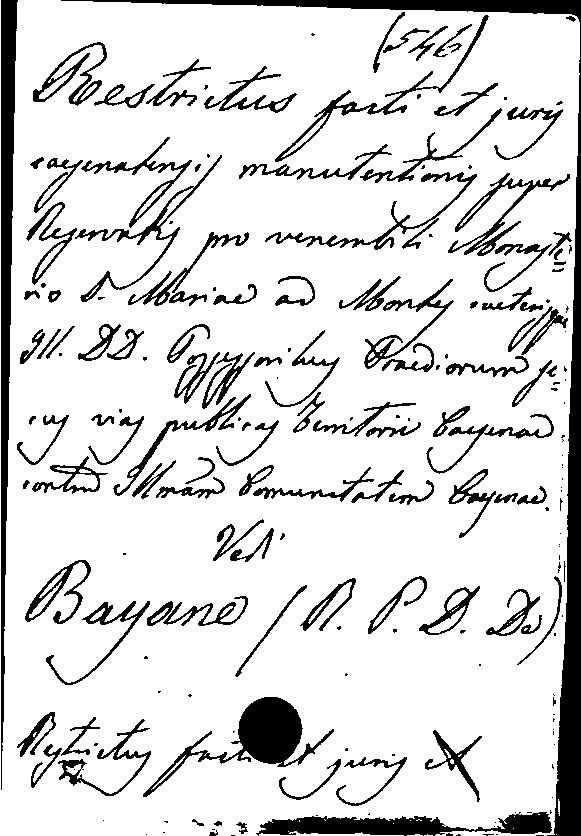 (546)
Restrictus facti et juris
caesenatensis manutentionis super
Reservatis pro venerabili Monaste=
rio S. Mariae ad Montes ceterisque
Ill. DD. Possessoribus Praediorum se=
cus vias publicas Territorii Caesenae
contra Illmam Comunitatem Caesenae.
Vedi
Bayane (R. P. D. De)
Restrictus facti et juris et